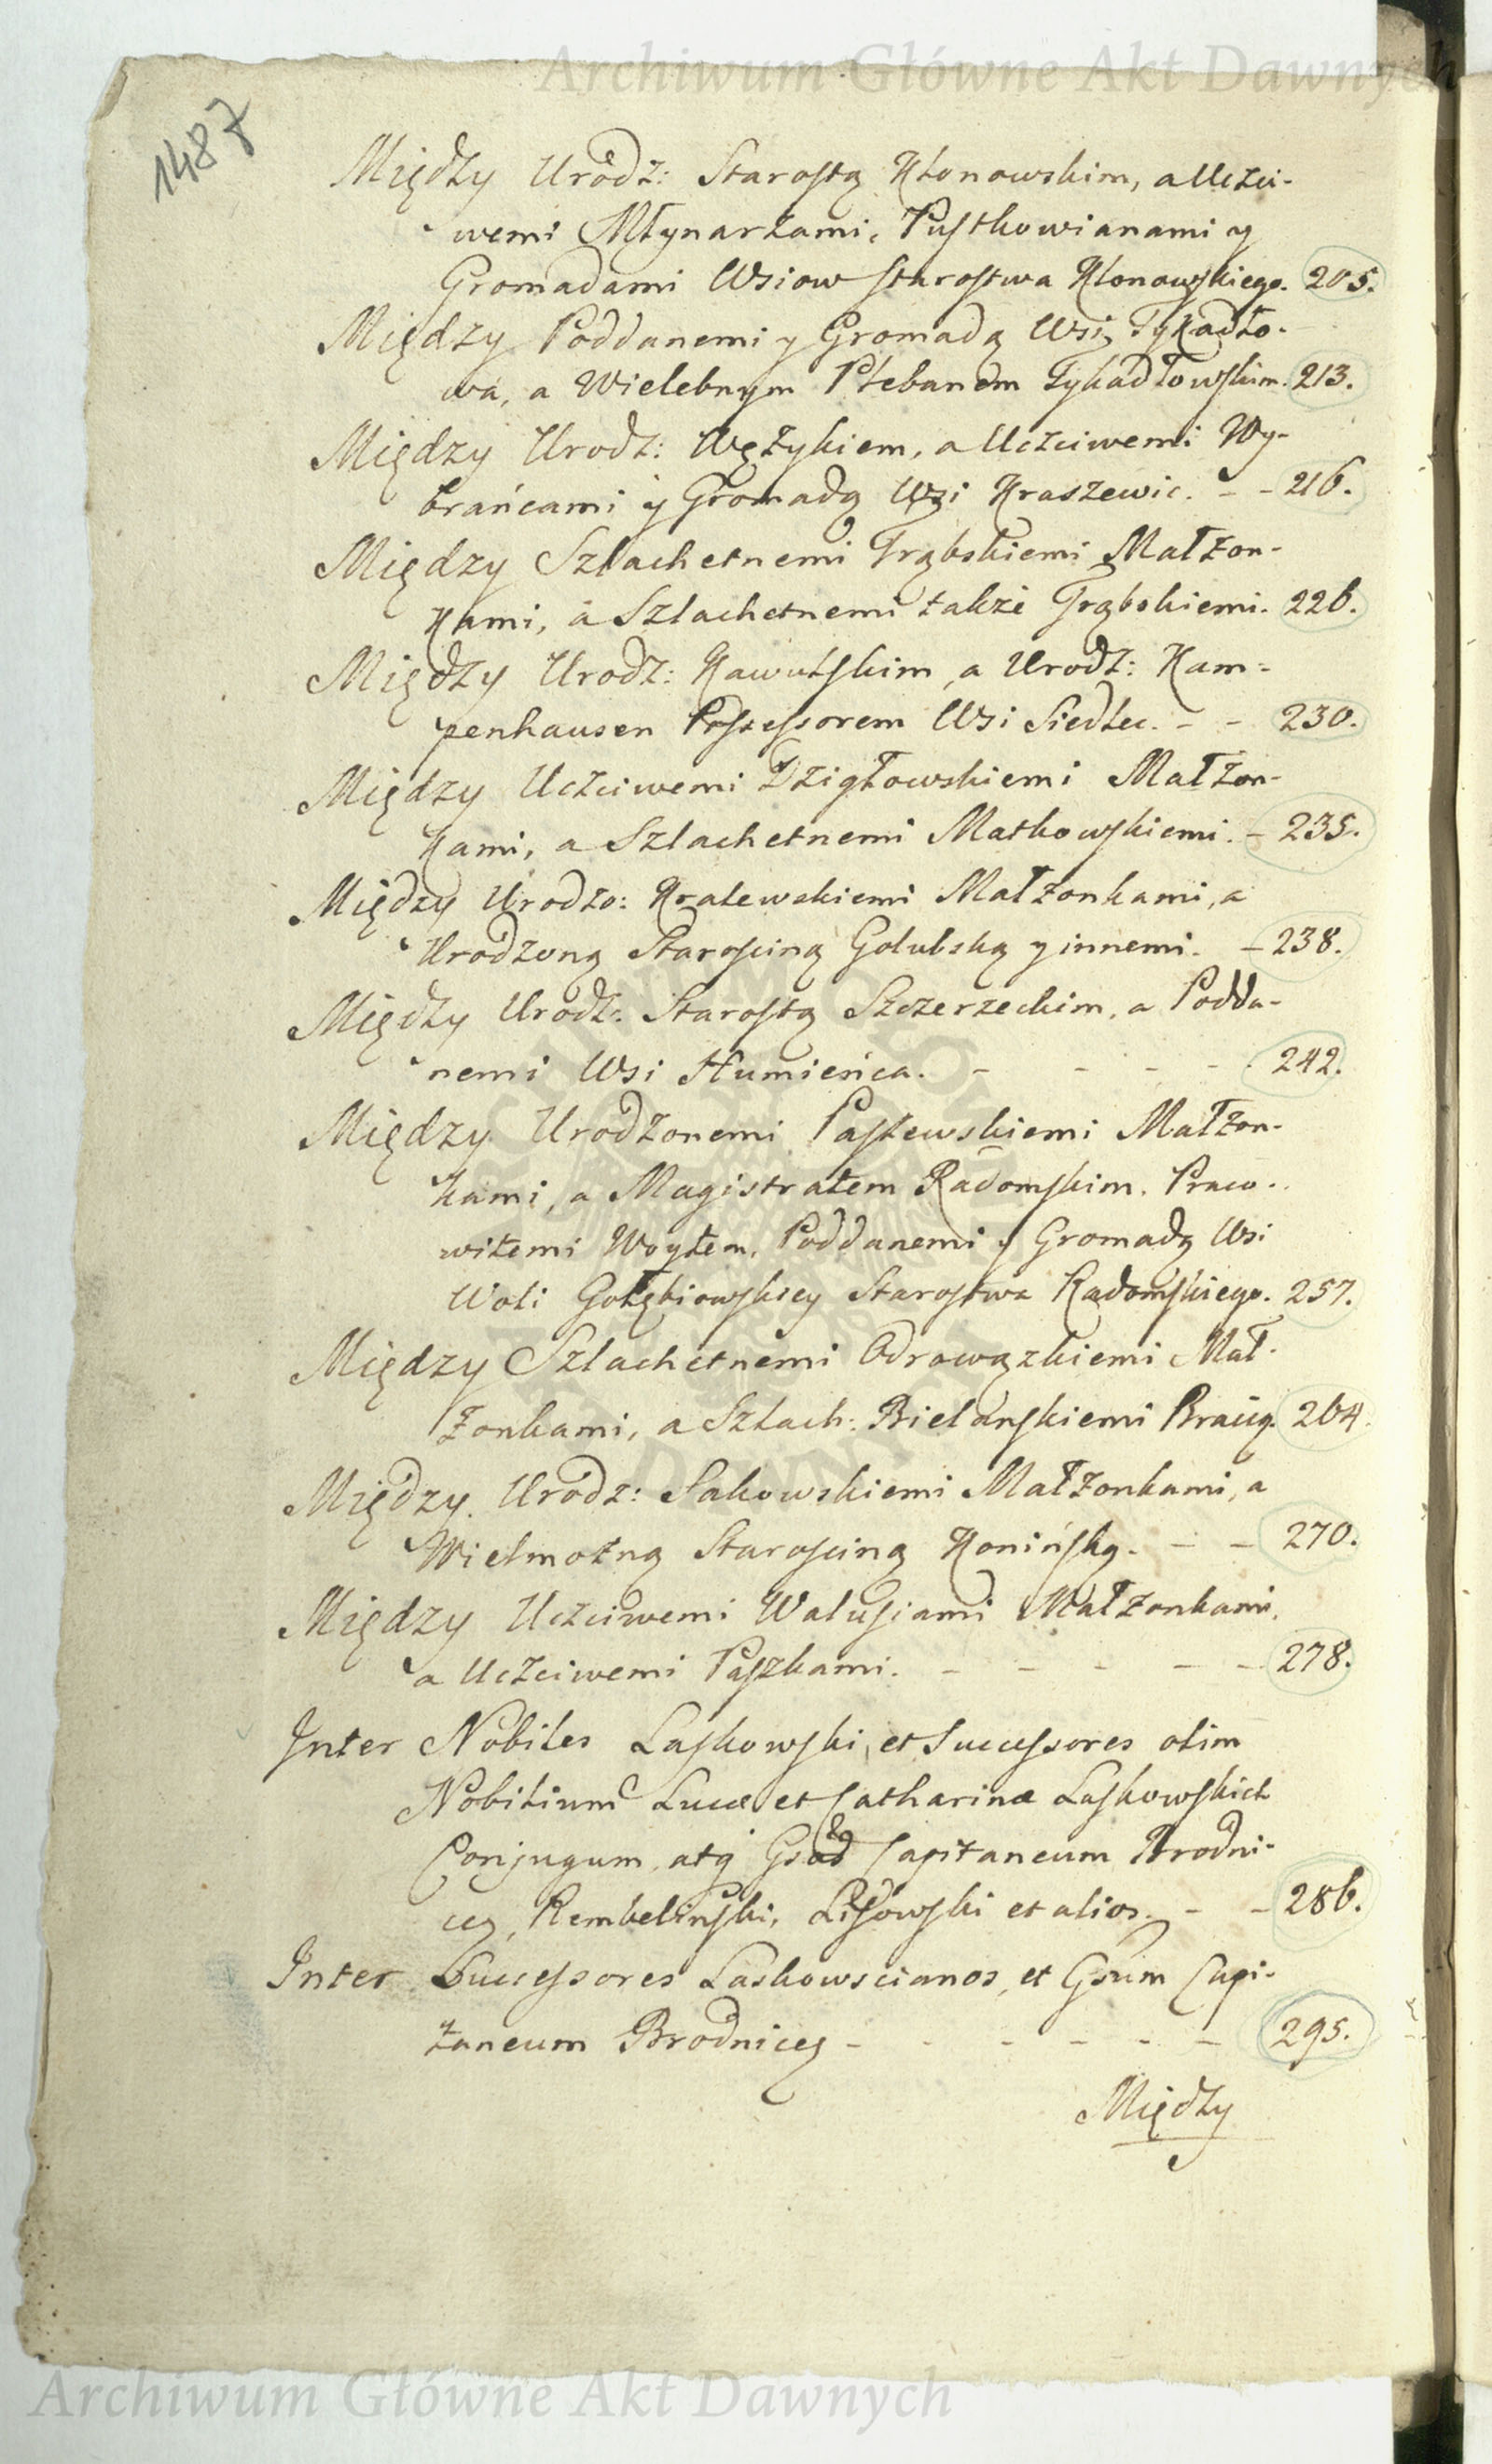 Archiwum Główne Akt Dawnych
1487
Między Urodz: Starostą Kłonowskim, a Uczci-
wemi Młynarzami, Pustkowianami y
Gromadami Wsiow Starostwa Klonowskiego. 205.
Między Poddanemi y Gromadą Wsi Tykadło-
wa, a Wielebnym Plebanem Tykadłowskim. 213.
Między Urodz: Wężykiem, a Uczciwemi Wy-
brańcami y Gromadą Wsi Kraszewic. - - 216.
Między Szlachetnemi Trąbskiemi Małżon-
kami, a Szlachetnemi także Trąbskiemi. 226.
Między Urodz: Kawulskim, a Urodz: Kam-
penhausen Possessorem Wsi Siedlec. - - 230.
Między Uczciwemi Dzigłowskiemi Małżon-
kami, a Szlachetnemi Matkowskiemi. - 235.
Między Urodzo: Kralewskiemi Małżonkami, a
Urodzoną Starościną Golubską y innemi. - 238.
Między Urodz: Starostą Szczerzeckim, a Podda-
nemi Wsi Humieńca. - - - - - 242.
Między Urodzonemi Pastewskiemi Małżon-
kami, a Magistratem Radomskim, Praco-
witemi Woytem, Poddanemi y Gromadą Wsi
Woli Gołębiowskiey Starostwa Radomskiego. 257.
Między Szlachetnemi Odrowązkiemi Mał-
żonkami, a Szlach: Bielanskiemi Bracią. 264.
Między Urodz: Sakowskiemi Małżonkami, a
Wielmożną Starościną Konińską. - - 270.
Między Uczciwemi Walusiami Małżonkami,
a Uczciwemi Paszkami. - - - - - 278.
Inter Nobiles Laskowski, et Successores olim
Nobilium Lucæ et Catharinæ Laskowskich
Conjugum, atq Gsod Capitaneum Brodni-
cen, Rembelinski, Lisowski et alios. - - 286.
Inter Successores Laskowscianos, et Gsum Capi-
taneum Brodnicen - - - - - - 295.
Między
Archiwum Główne Akt Dawnych